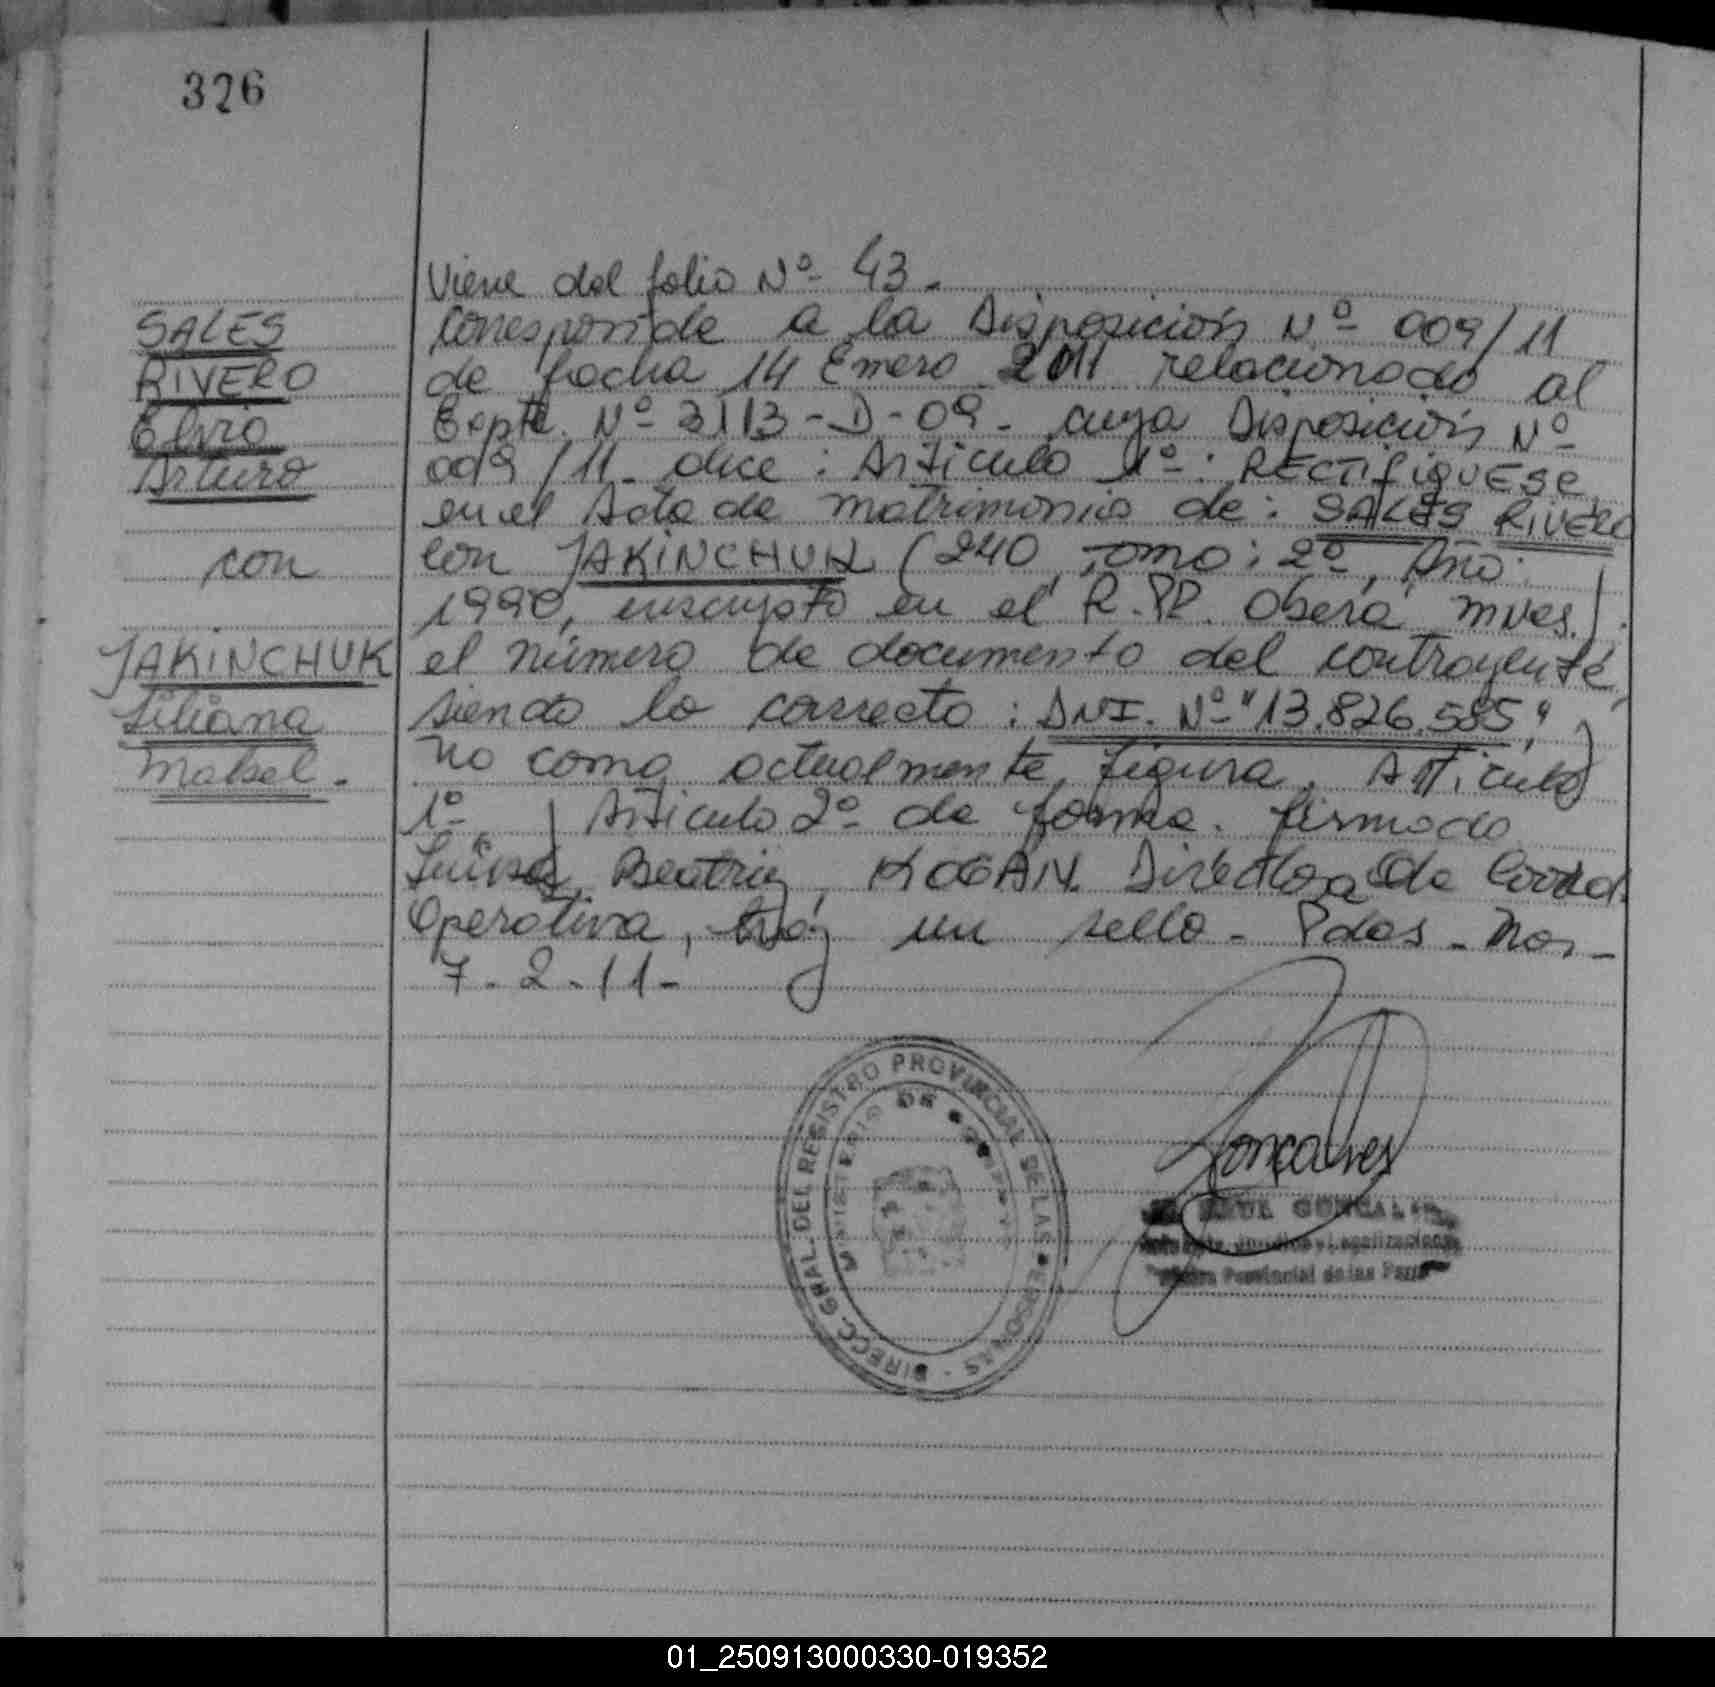 326
Viene del folio Nº 43.
SALES
RIVERO
Elvio
Arturo
con
JAKINCHUK
Liliana
Mabel.
Corresponde a la Disposición Nº 009/11
de fecha 14 Enero 2011 relacionado al
Expte. Nº 3113-D-09- cuya Disposición Nº
009/11 dice: Artículo 1º: RECTIFIQUESE
en el Acta de matrimonio de: SALES RIVERO
con JAKINCHUK (240, Tomo: 2º, Año:
1990, inscripto en el R.PP. Oberá, Mnes.)
el número de documento del contrayente,
siendo lo correcto: DNI. Nº "13.826.585"
no como actualmente figura. Artículo
1º Artículo 2º de forma. firmado
Beatriz KOGAN. Directora de Coord.
Operativa, hay un sello - Pdas - Mnes -
7-2-11-
DIRECC. GRAL. DEL REGISTRO PROVINCIAL DE LAS PERSONAS
MINISTERIO DE
Goncalves
GONCAL
Jurídico y Legalizaciones
Provincial de las Pers
01_250913000330-019352